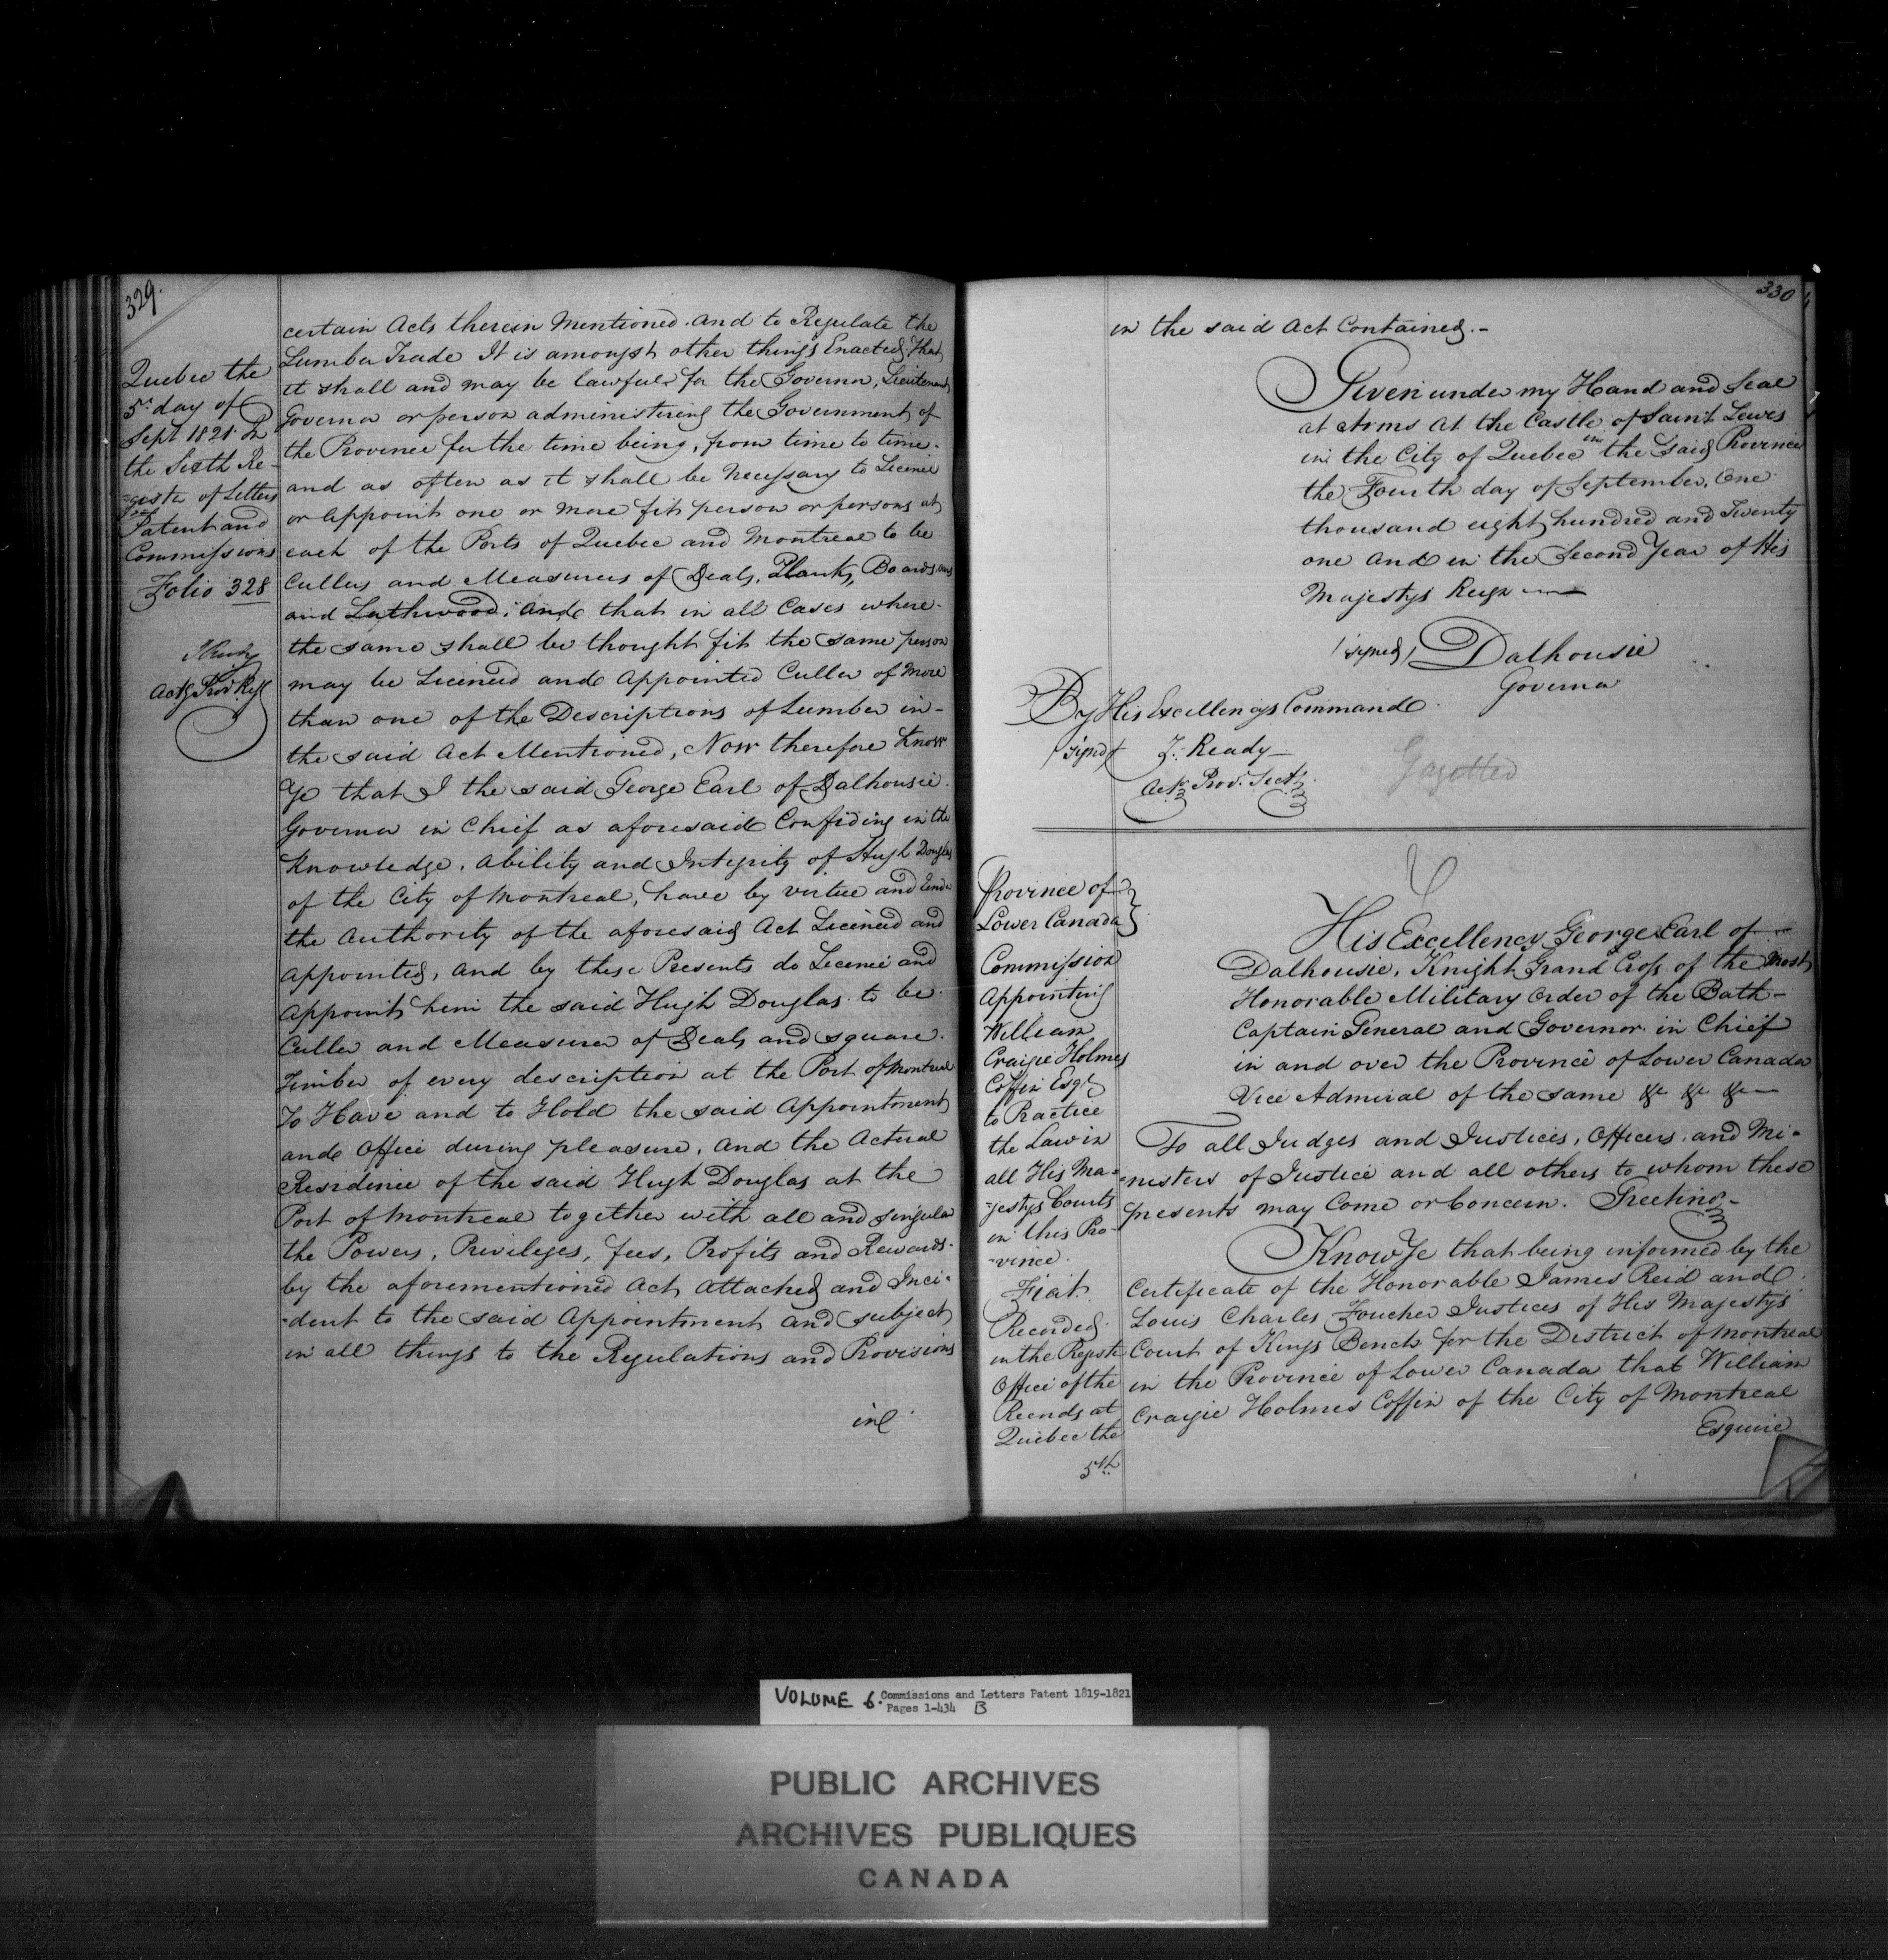 329.
Quebec the
5th day of
Sept 1821. In
the Sixth Re-
-gister of Letters
Patent and
Commissions
Folio 328
Actg Prov Regr
certain Acts therein Mentioned. and to Regulate the
Lumber Trade It is amongst other things Enacted, that
it shall and may be lawful for the Governor, Lieutenant
Governor or person administering the Government of
the Province for the time being, from time to time.
and as often as it shall be Necessary to Licence
or appoint one or more fit person or persons at
each of the Ports of Quebec and Montreal to be
Cullers and Measurers of Deals, Planks, Boards
and Lathwood, and that in all Cases where-
the same shall be thought fit the same person
may be Licenced and Appointed Culler of More
than one of the Descriptions of Lumber in-
the said Act Mentioned, Now therefore Know
Ye that I the said George Earl of Dalhousie.
Governor in Chief as aforesaid Confiding in the
Knowledge, Ability and Integrity of Hugh Douglas
of the City of Montreal, have by virtue and Under
the Authority of the aforesaid Act Licenced and
appointed, and by these Presents do Licence and
Appoint him the said Hugh Douglas to be
Culler and Measurer of Deals and square.
Timber of every description at the Port of Montreal
To Have and to Hold the said Appointment
and Office during pleasure, and the Actual
Residence of the said Hugh Douglas at the
Port of Montreal together with all and singular
the Powers, Privileges, fees, Profits and Rewards.
by the aforementioned Act Attached and Inci-
-dent to the said Appointment and subject
in all things to the Regulations and Provisions
in
330
in the said Act Contained.-
Given under my Hand and Seal
at Arms at the Castle of Saint Lewis
in the City of Quebec in the said Province
the Fourth day of September, One
thousand eight hundred and Twenty
one and in the Second Year of His
Majestys Reign
(signed) Dalhousie
Governor
By His Excellencys Command
(signed) J: Ready
Actg Prov: Secty.
Gazetted
Province of }
Lower Canada }
Commission
Appointing
William
Craigie Holmes
Coffin Esqr
to Practice
the Law in
all His Ma-
-jestys Courts
in this Pro-
-vince.
Fiat.
Recorded
in the Registr
Office of the
Records at
Quebec the
5th
His Excellency George Earl of
Dalhousie, Knight Grand Cross of the Most
Honorable Military Order of the Bath-
Captain General and Governor in Chief
in and over the Province of Lower Canada
Vice Admiral of the same &c &c &c
To all Judges and Justices, Officers, and Mi-
-nisters of Justice and all others to whom these
presents may Come or Concern. Greeting-
Know Ye that being informed by the
Certificate of the Honorable James Reid and
Louis Charles Foucher Justices of His Majesty's
Court of Kings Bench for the District of Montreal
in the Province of Lower Canada that William
Craigie Holmes Coffin of the City of Montreal
Esquire
VOLUME 6. Commissions and Letters Patent 1819-1821
Pages 1-434 B
PUBLIC ARCHIVES
ARCHIVES PUBLIQUES
CANADA